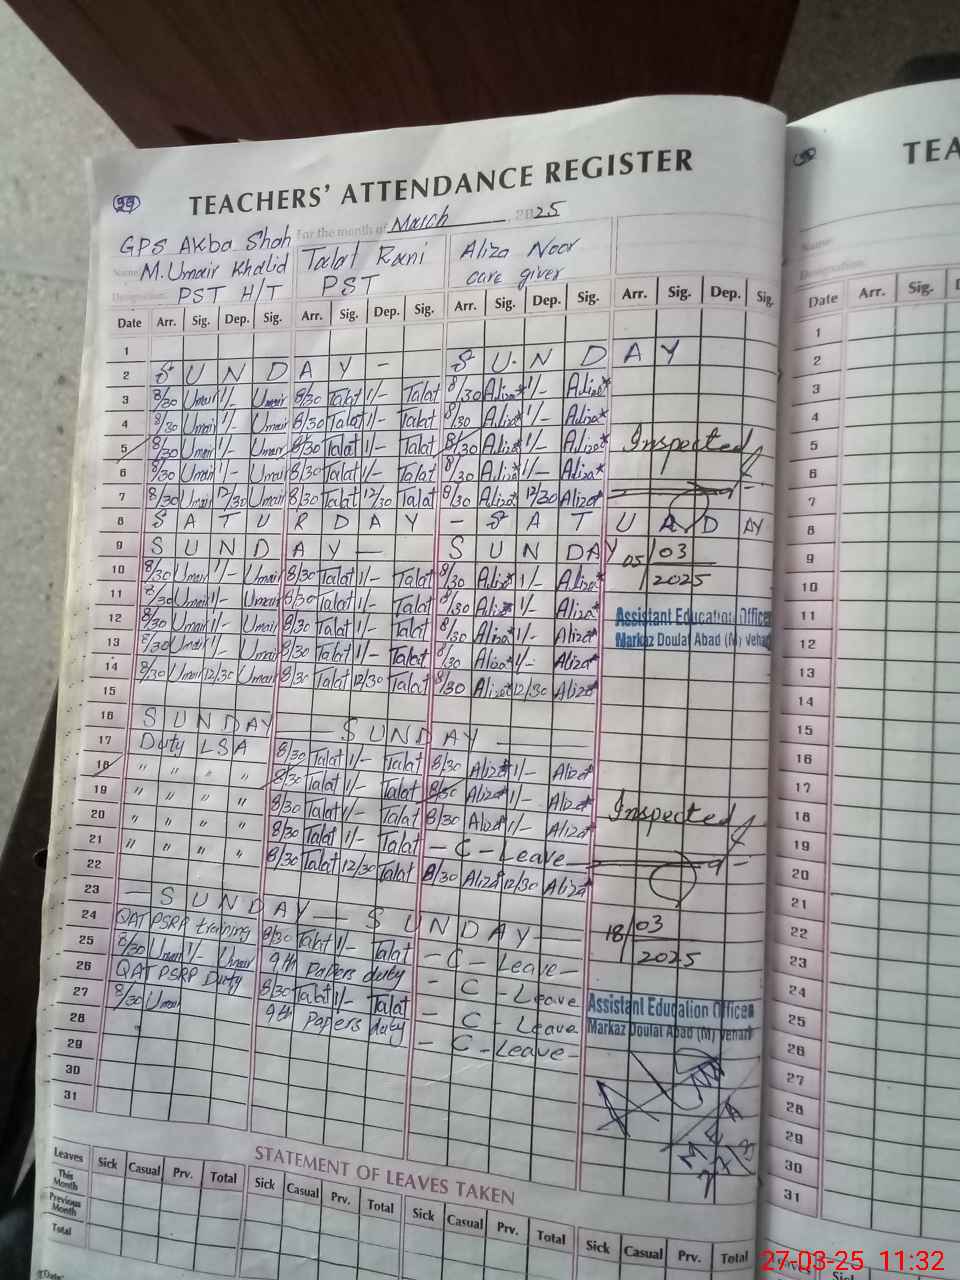 39
TEACHERS' ATTENDANCE REGISTER
TEA
For the month of March 2025
GPS Akba Shah
Name M. Umair Khalid Talat Rani Aliza Noor
Designation PST H/T PST care giver
Name:
Designation:
Date Arr. Sig. Dep. Sig. Arr. Sig. Dep. Sig. Arr. Sig. Dep. Sig. Arr. Sig. Dep. Sig.
Date Arr. Sig.
1
2 S U N D A Y - S U N D A Y
3 8/30 Umair 1/- Umair 8/30 Talat 1/- Talat 8/30 Aliza 1/- Aliza
4 8/30 Umair 1/- Umair 8/30 Talat 1/- Talat 8/30 Aliza 1/- Aliza
5 8/30 Umair 1/- Umair 8/30 Talat 1/- Talat 8/30 Aliza 1/- Aliza Inspected
6 8/30 Umair 1/- Umair 8/30 Talat 1/- Talat 8/30 Aliza 1/- Aliza
7 8/30 Umair 12/30 Umair 8/30 Talat 12/30 Talat 8/30 Aliza 12/30 Aliza
8 S A T U R D A Y - S A T U R D AY
9 S U N D A Y — S U N DAY 05/03/2025
10 8/30 Umair 1/- Umair 8/30 Talat 1/- Talat 8/30 Aliza 1/- Aliza
11 8/30 Umair 1/- Umair 8/30 Talat 1/- Talat 8/30 Aliza 1/- Aliza
Assistant Education Officer
12 8/30 Umair 1/- Umair 8/30 Talat 1/- Talat 8/30 Aliza 1/- Aliza
Markaz Doulat Abad (M) Vehari
13 8/30 Umair 1/- Umair 8/30 Talat 1/- Talat 8/30 Aliza 1/- Aliza
14 8/30 Umair 12/30 Umair 8/30 Talat 12/30 Talat 8/30 Aliza 12/30 Aliza
15
16 S U N D A Y — S U N D A Y —
17 Duty LSA 8/30 Talat 1/- Talat 8/30 Aliza 1/- Aliza
18 " " " " 8/30 Talat 1/- Talat 8/30 Aliza 1/- Aliza
19 " " " " 8/30 Talat 1/- Talat 8/30 Aliza 1/- Aliza Inspected
20 " " " " 8/30 Talat 1/- Talat - C - Leave
21 " " " " 8/30 Talat 12/30 Talat 8/30 Aliza 12/30 Aliza
22
23 — S U N D A Y — S U N D A Y —
24 QAT PSRP training 8/30 Talat 1/- Talat - C - Leave - 18/03/2025
25 8/30 Umair 1/- Umair 9th Papers duty - C - Leave
26 QAT PSRP Duty 8/30 Talat 1/- Talat - C - Leave
Assistant Education Officer
27 8/30 Umair 9th Papers duty - C - Leave -
Markaz Doulat Abad (M) Vehari
28
29
30
31
M E A
STATEMENT OF LEAVES TAKEN
Leaves Sick Casual Prv. Total Sick Casual Prv. Total Sick Casual Prv. Total Sick Casual Prv. Total
This Month
Previous Month
Total
Date
1
2
3
4
5
6
7
8
9
10
11
12
13
14
15
16
17
18
19
20
21
22
23
24
25
26
27
28
29
30
31
Sick
27-03-25 11:32